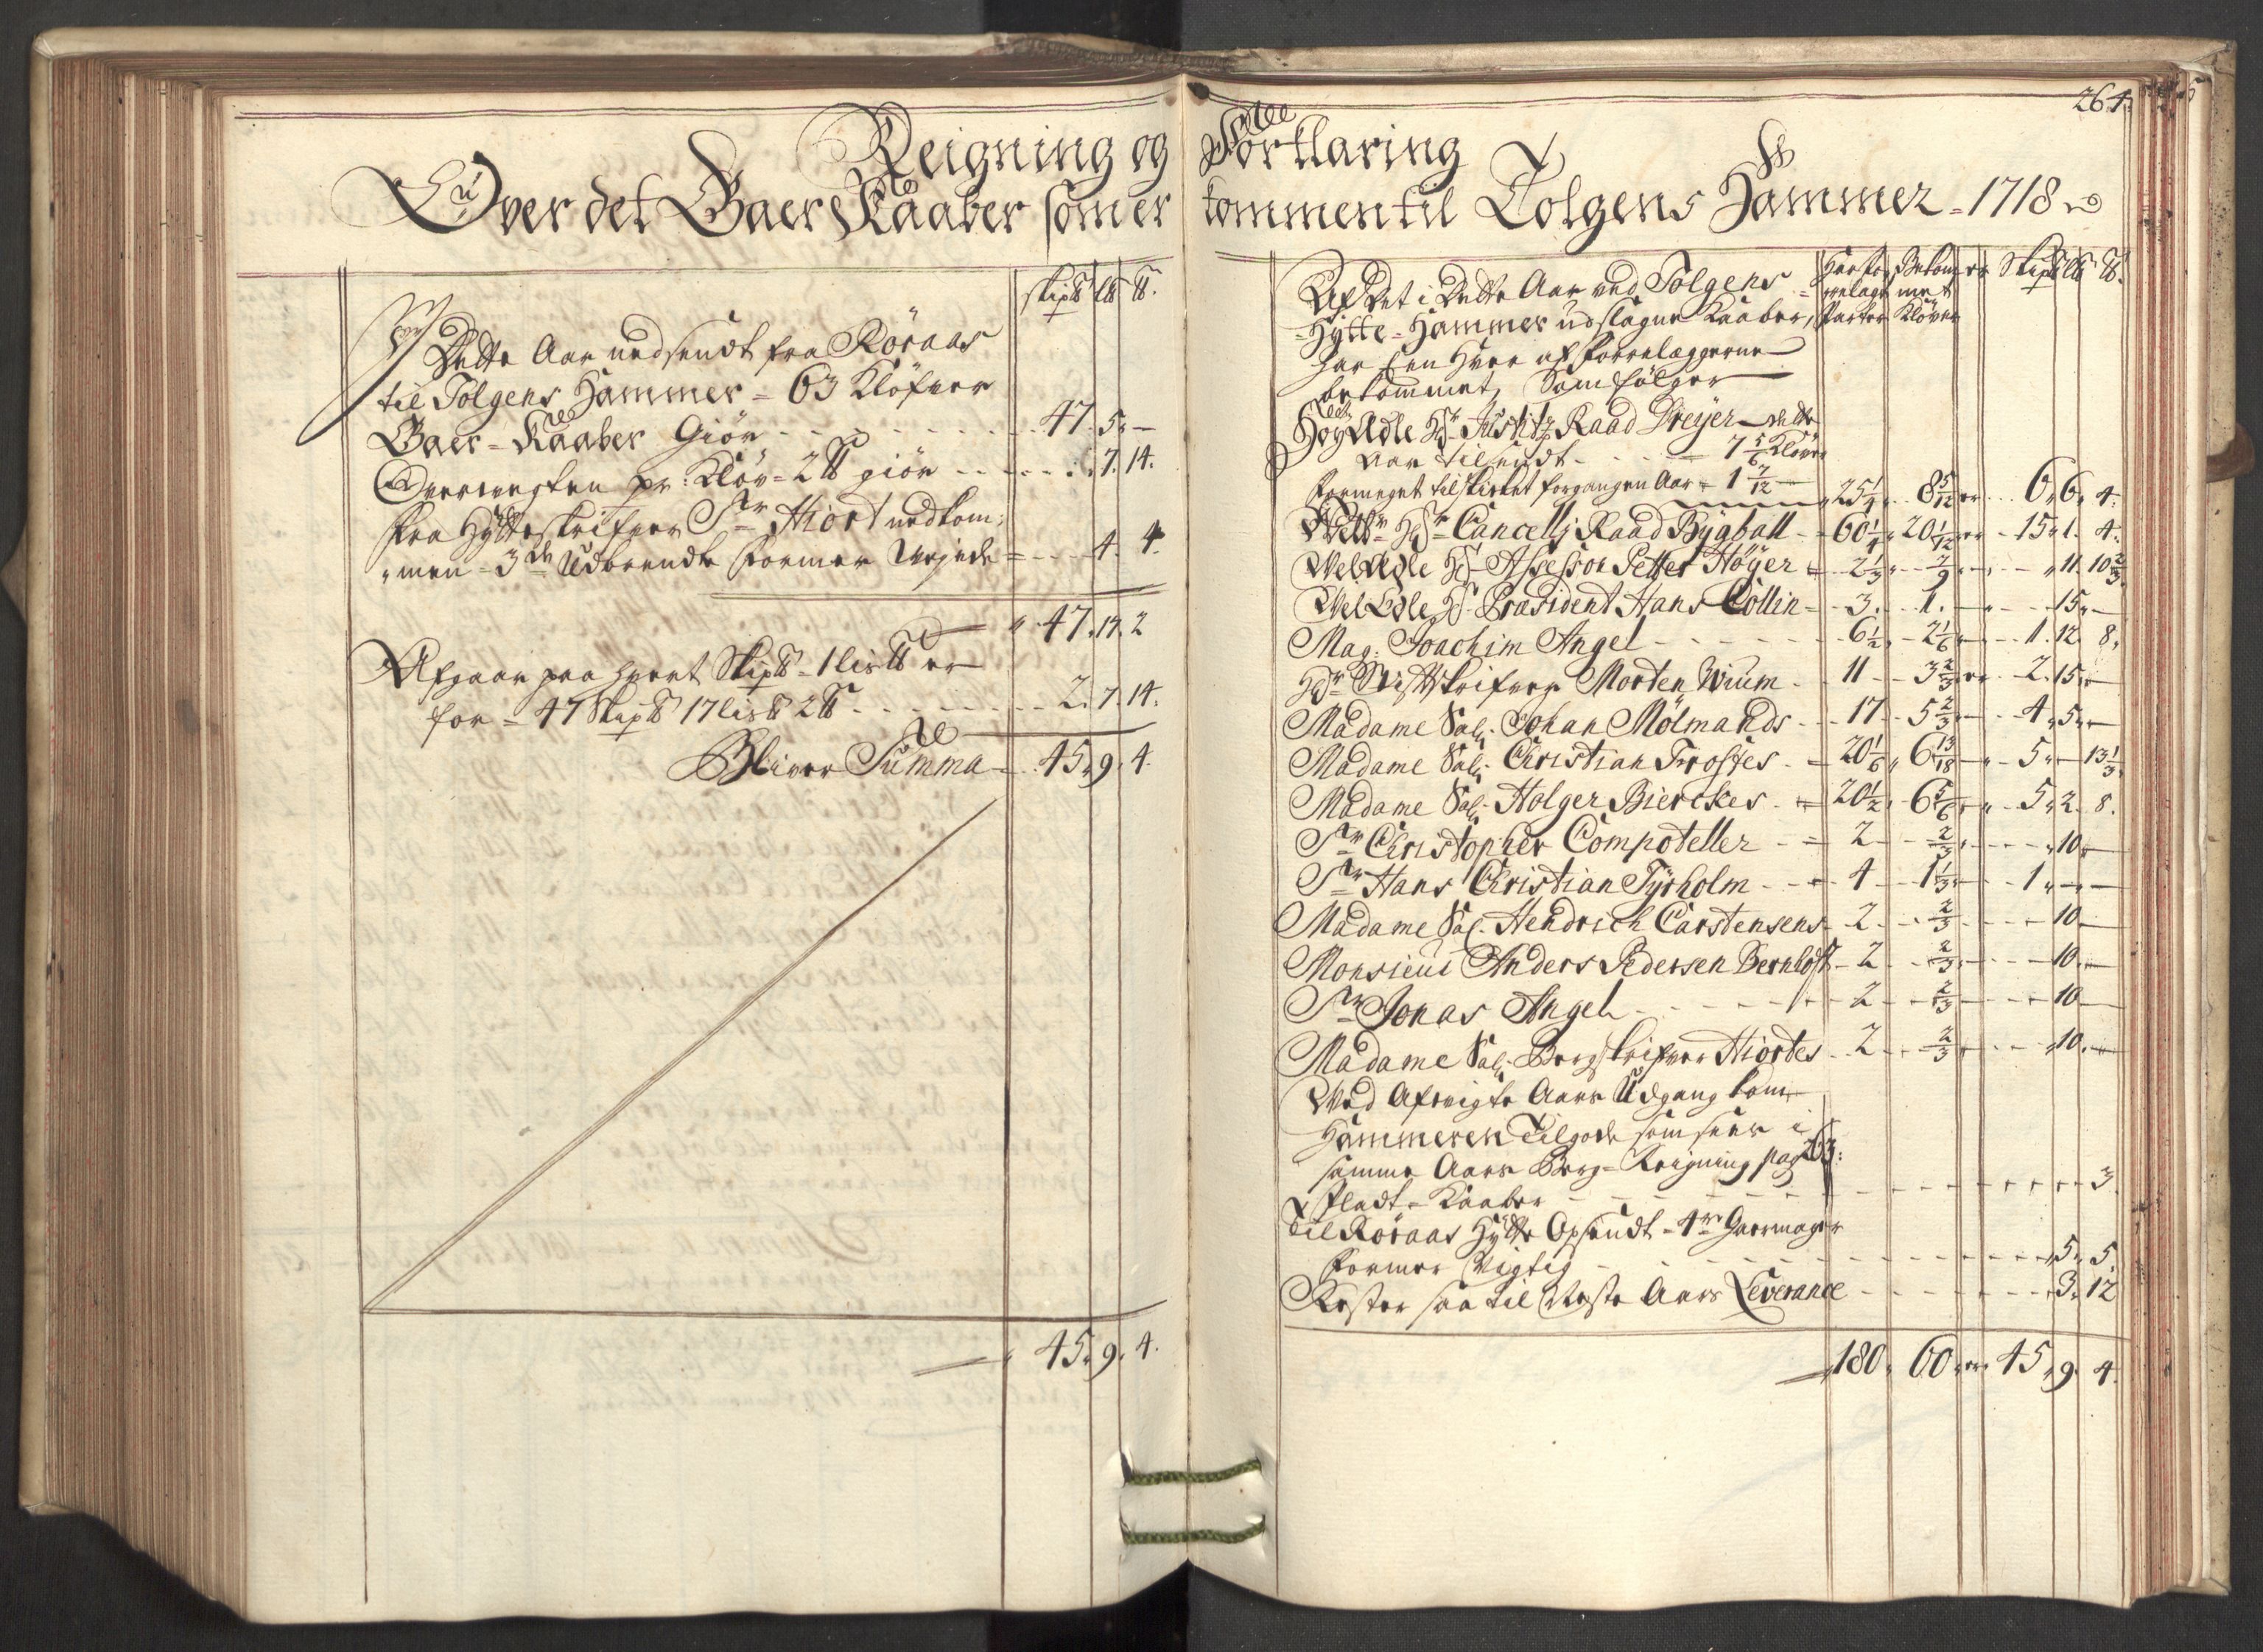 Reigning og
Over det Gaer Kaaber som er
skip℔ l℔ ℔.
Dette Aar nedsendt fra Röraas
til Tolgens Hammer = 63 Klöfver
Gaer = Kaaber Giör - - - 47. 5. —
Overvegten pr: Klöv = 2 ℔ giör - - - 7. 14.
fra Hytteskrifver Sr Hiort nedkom¬
men = 3de Udbrendte former = - - 4. 4.
47. 17. 2
Afgaar paa hvert Skip℔ = 1 lis℔ er
for = 47 Skip℔ 17 lis℔ 2 ℔ - - - 2. 7. 14.
Bliver Summa - 45. 9. 4.
45. 9. 4.
264.
Forklaring
kommen til Tolgens Hammer = 1718
Af det i dette Aar ved Tolgens =
Skip℔ l℔ ℔.
= Hytte = Hammer udslagne Kaaber, Parter Klöver
har Een Hver af
bekommet, Som fölger
HöyÆdle Hr Justitz Raad Dreyer dette
Aar tilsendt - - - 7 5/6 Klöver
formeget tilskicket forgangen Aar = 1 7/12
25 1/4 8 5/12 6. 6. 4.
Hr Cancelli Raad Bÿgball - 60 1/4 20 1/12 15. 1. 4.
WelÆdle Hr Assessor Petter Höÿer 2 1/3 7/9 11. 10 2/3
WelEdle Hr Præsident Hans Collin - 3. 1. - 15. —
Mag: Joachim Angel - - - 6 1/2 2 1/6 1. 12. 8.
Hr Stiftskrifver Morten Wium - 11 3 2/3 2. 15. —
Madame Sal: Johan Mölmands - 17 5 2/3 4. 5. —
Madame Sal: Christian Trostes - 20 1/6 6 13/18 5. — 13 1/3
Madame Sal: Holger Bierckes - 20 1/2 6 5/6 5. 2. 8.
Sr Christopher Compoteller - 2 2/3 10. —
Sr Hans Christian Tÿrholm - 4 1 1/3 1. — —
Madame Sal: Hendrich Carstensens - 2 2/3 10. —
Monsieur Anders Pedersen Bernhoft - 2 2/3 10. —
Sr Jonas Angel - - - 2 2/3 10 —
Madame Sal: Bergskrifver Hiortes - 2 2/3 10. —
Ved Afvigte Aars Udgang kom
Hammeren Tilgode som sees i
samme Aars Berg = Reigning pag 263:
Pladt = Kaaber - - - 3.
Til Röraas Hytte Opsendt = 4re Gaermager
former Vigtig - - - 5. 5.
Rester saa til Neste Aars Leverance - - - 3. 12
180. 60. 45. 9. 4.